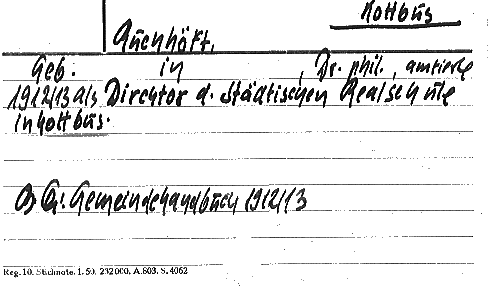 Kottbus
Quenhöft,
Geb. in , Dr. phil., amtierte
1912/13 als Direktor d. Städtischen Realschule
in Kottbus.
Gemeindehandbuch 1912/13
Reg. 10. Stichnote. 1. 50. 232000. A.603. S. 4062